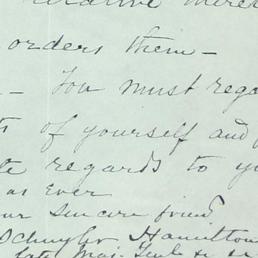 orders them —
— You must rega
ts of yourself and
te regards to yo
as Ever
our Sincere friend
Schuyler Hamilton
late Maj. Genl